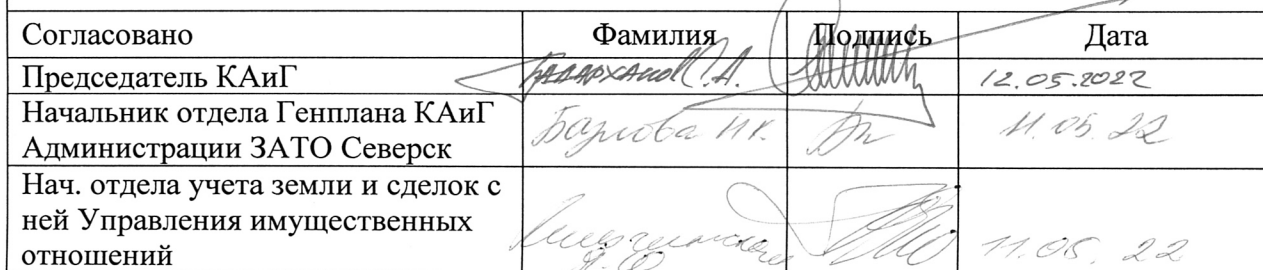 Согласовано Фамилия Подпись Дата
Председатель КАиГ С.А. 12.05.2022
Начальник отдела Генплана КАиГ
Администрации ЗАТО Северск Н.К. 11.05.22
Нач. отдела учета земли и сделок с
ней Управления имущественных
отношений 11.05.22